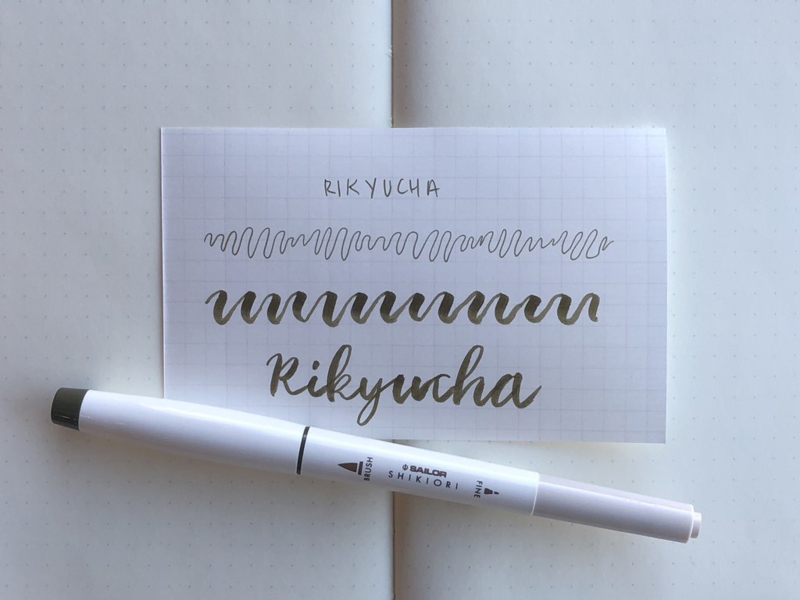 RIKYUCHA
Rikyucha
BRUSH
SAILOR
SHIKIORI
FINE